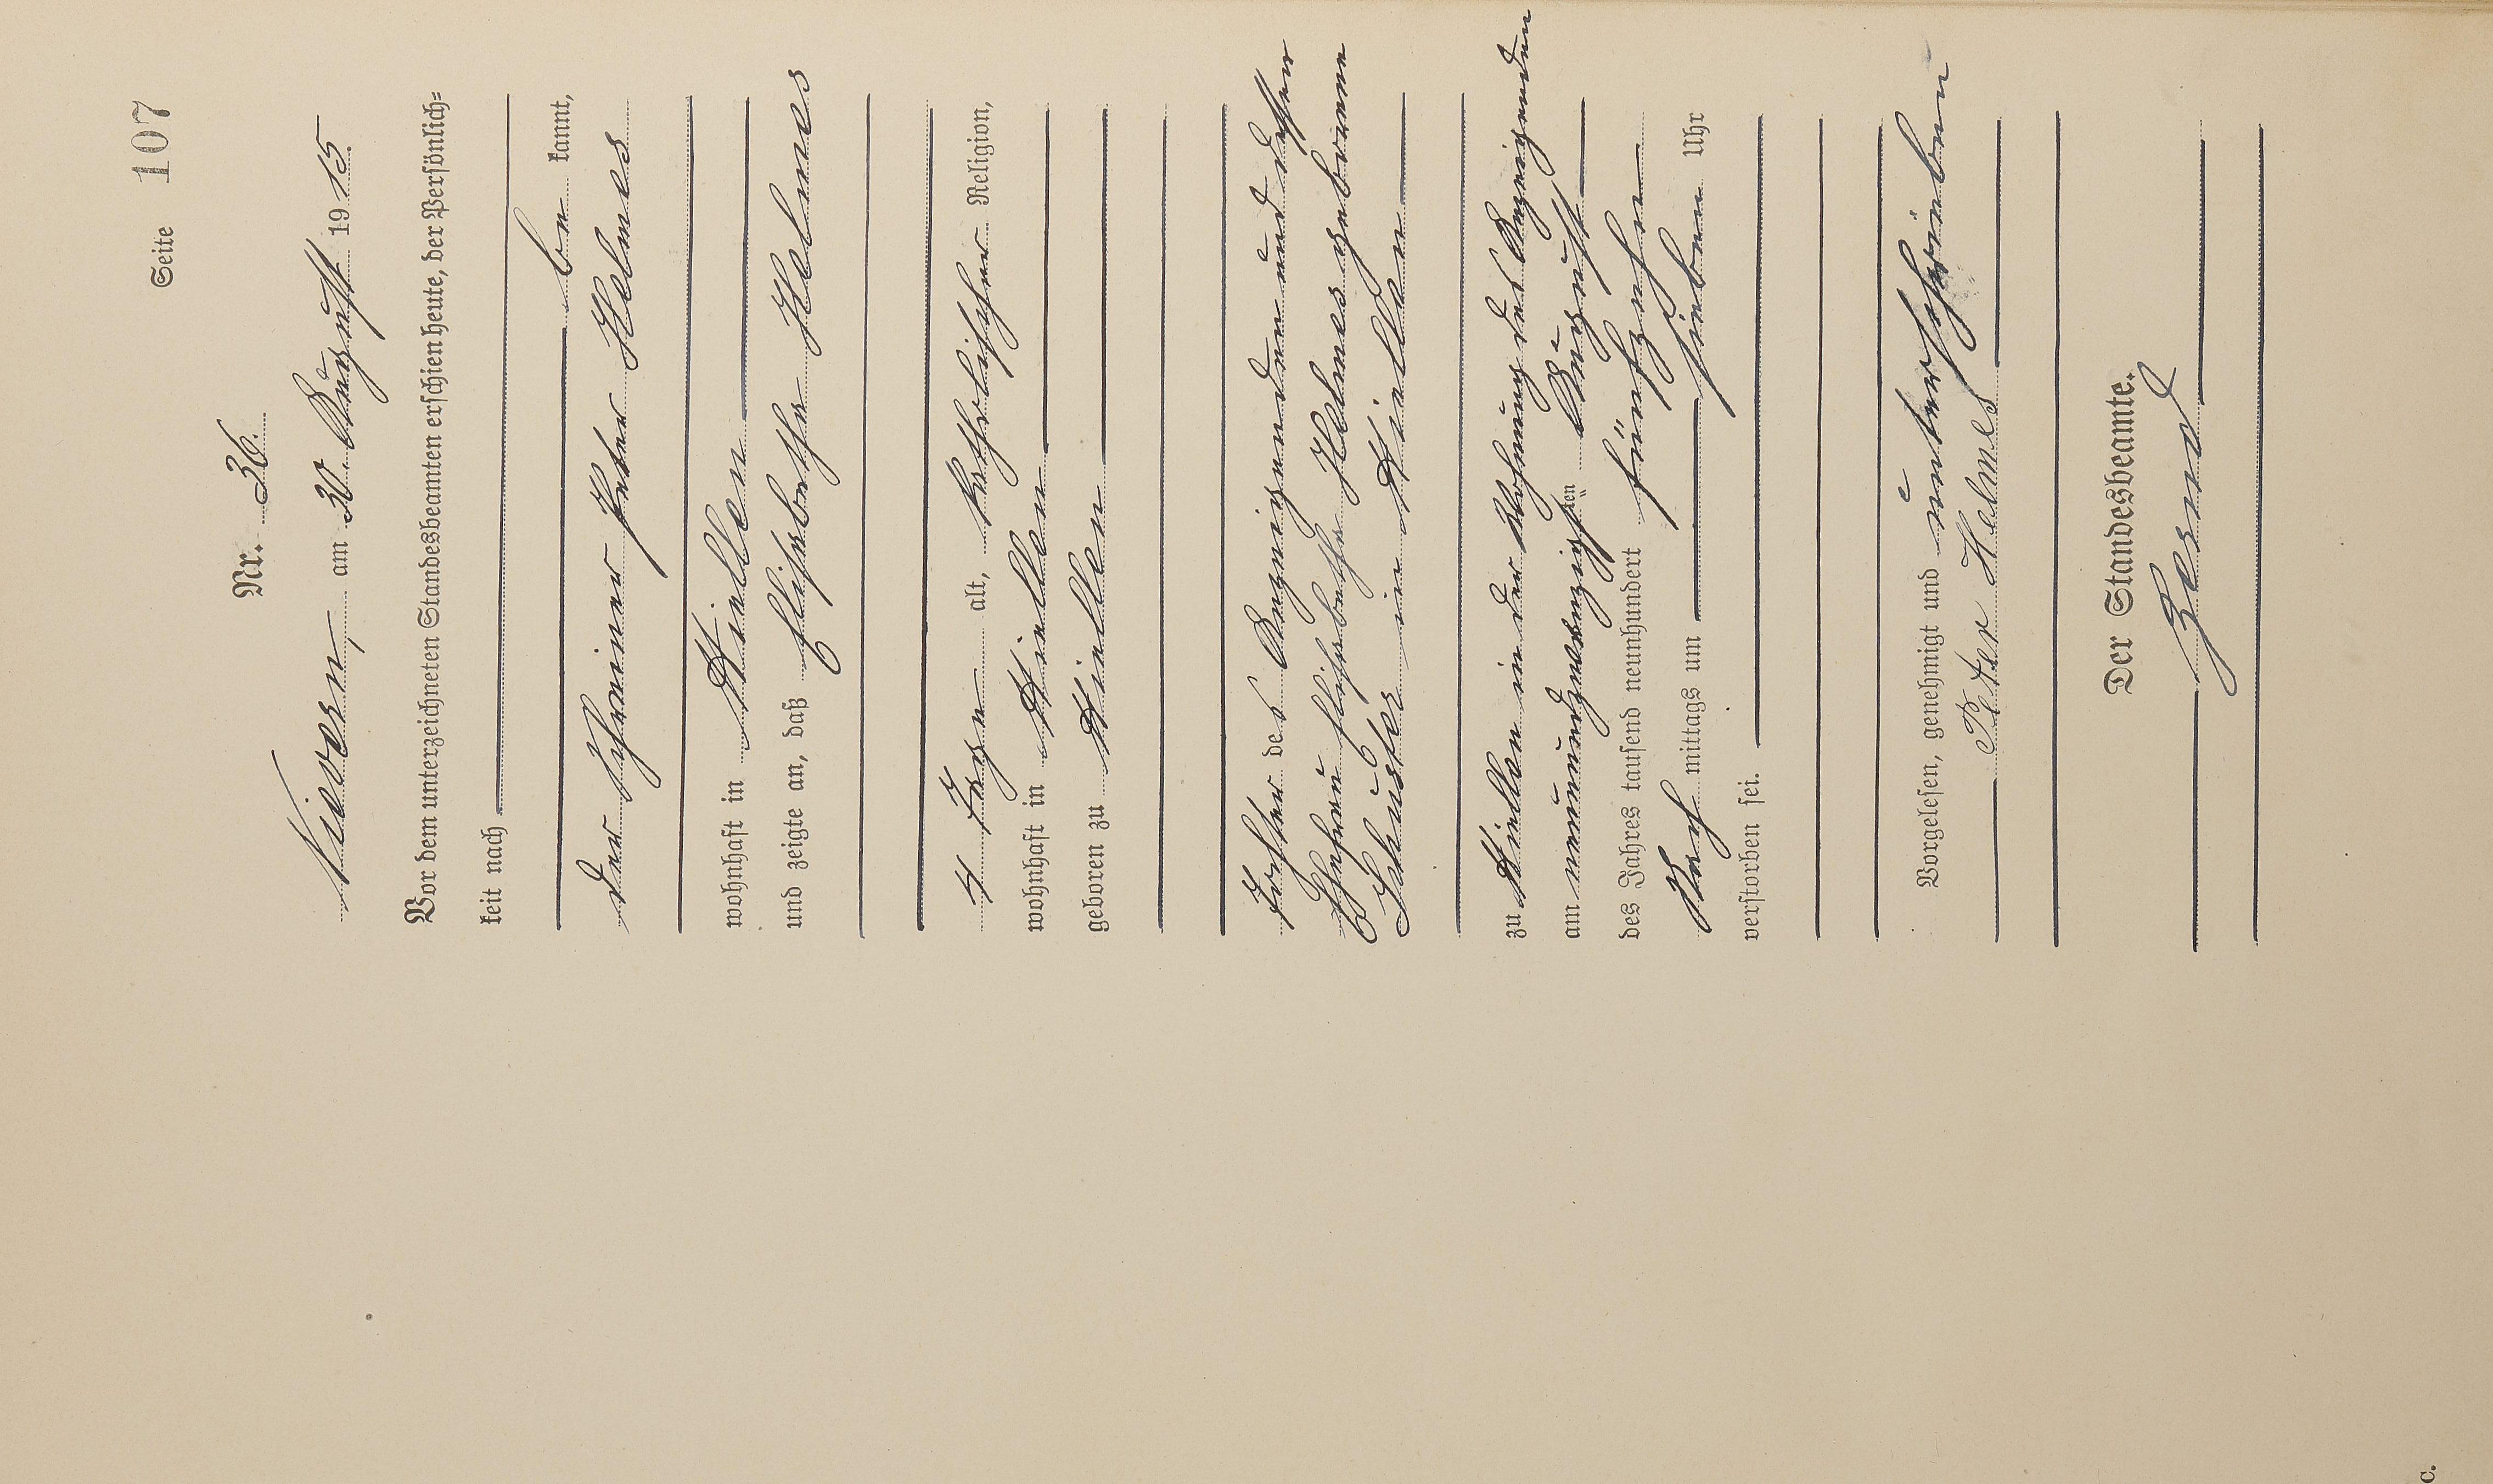 Seite 107
Nr. 36.
Nievern, am 30. August 1915.
Vor dem unterzeichneten Standesbeamten erschien heute, der Persönlich=
keit nach
be kannt,
der Schreiner Peter Helmes
wohnhaft in Miellen
und zeigte an, daß Elisabetha Helmes
4 Tage alt, katholischer Religion,
wohnhaft in Miellen
geboren zu Miellen
Tochter des Anzeigenden und dessen
Ehefrau Elisabetha Helmes geborene
Schuster in Miellen
zu Miellen in der Wohnung des Anzeigenden
am neunundzwanzigsten August
des Jahres tausend neunhundert fünfzehn
Nach mittags um sieben Uhr
verstorben sei.
Vorgelesen, genehmigt und unterschrieben
Peter Helmes
Der Standesbeamte.
C.